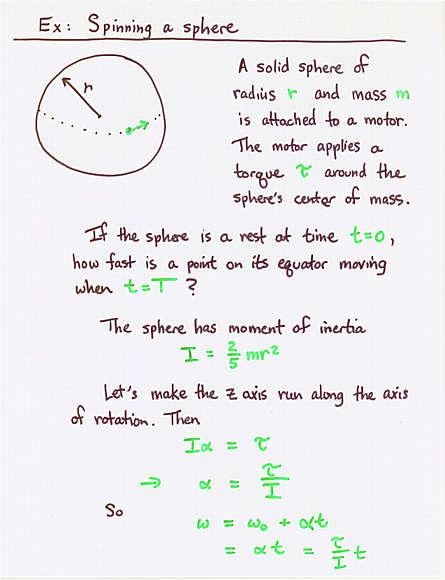 Ex: Spinning a sphere
r
A solid sphere of
radius r and mass m
is attached to a motor.
The motor applies a
torque τ around the
sphere's center of mass.
If the sphere is a rest at time t=0,
how fast is a point on its equator moving
when t=T ?
The sphere has moment of inertia
I = 2/5 mr²
Let's make the z axis run along the axis
of rotation. Then
Iα = τ
→ α = τ/I
So
ω = ω₀ + αt
= αt = τ/I t